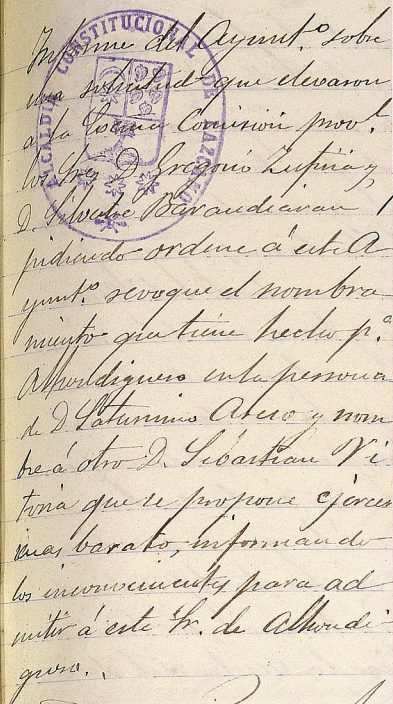 Informe del Ayunt.º sobre
una solicitud que elevaron
a la Excma Comisión prov.l
los Sres D. Gregorio Zufiria y
D. Silvestre Barandiaran
pidiendo ordene á este A
yunt.º revoque el nombra
miento que tiene hecho p.ª
Alhondiguero en la persona
de D. Saturnino Atero y nom
bre á otro D. Sebastian Vi
toria que se propone ejercer
mas barato, informando
los inconvenientes para ad
mitir á este Sr. de Alhondi
guero.
ALCALDIA CONSTITUCIONAL DE